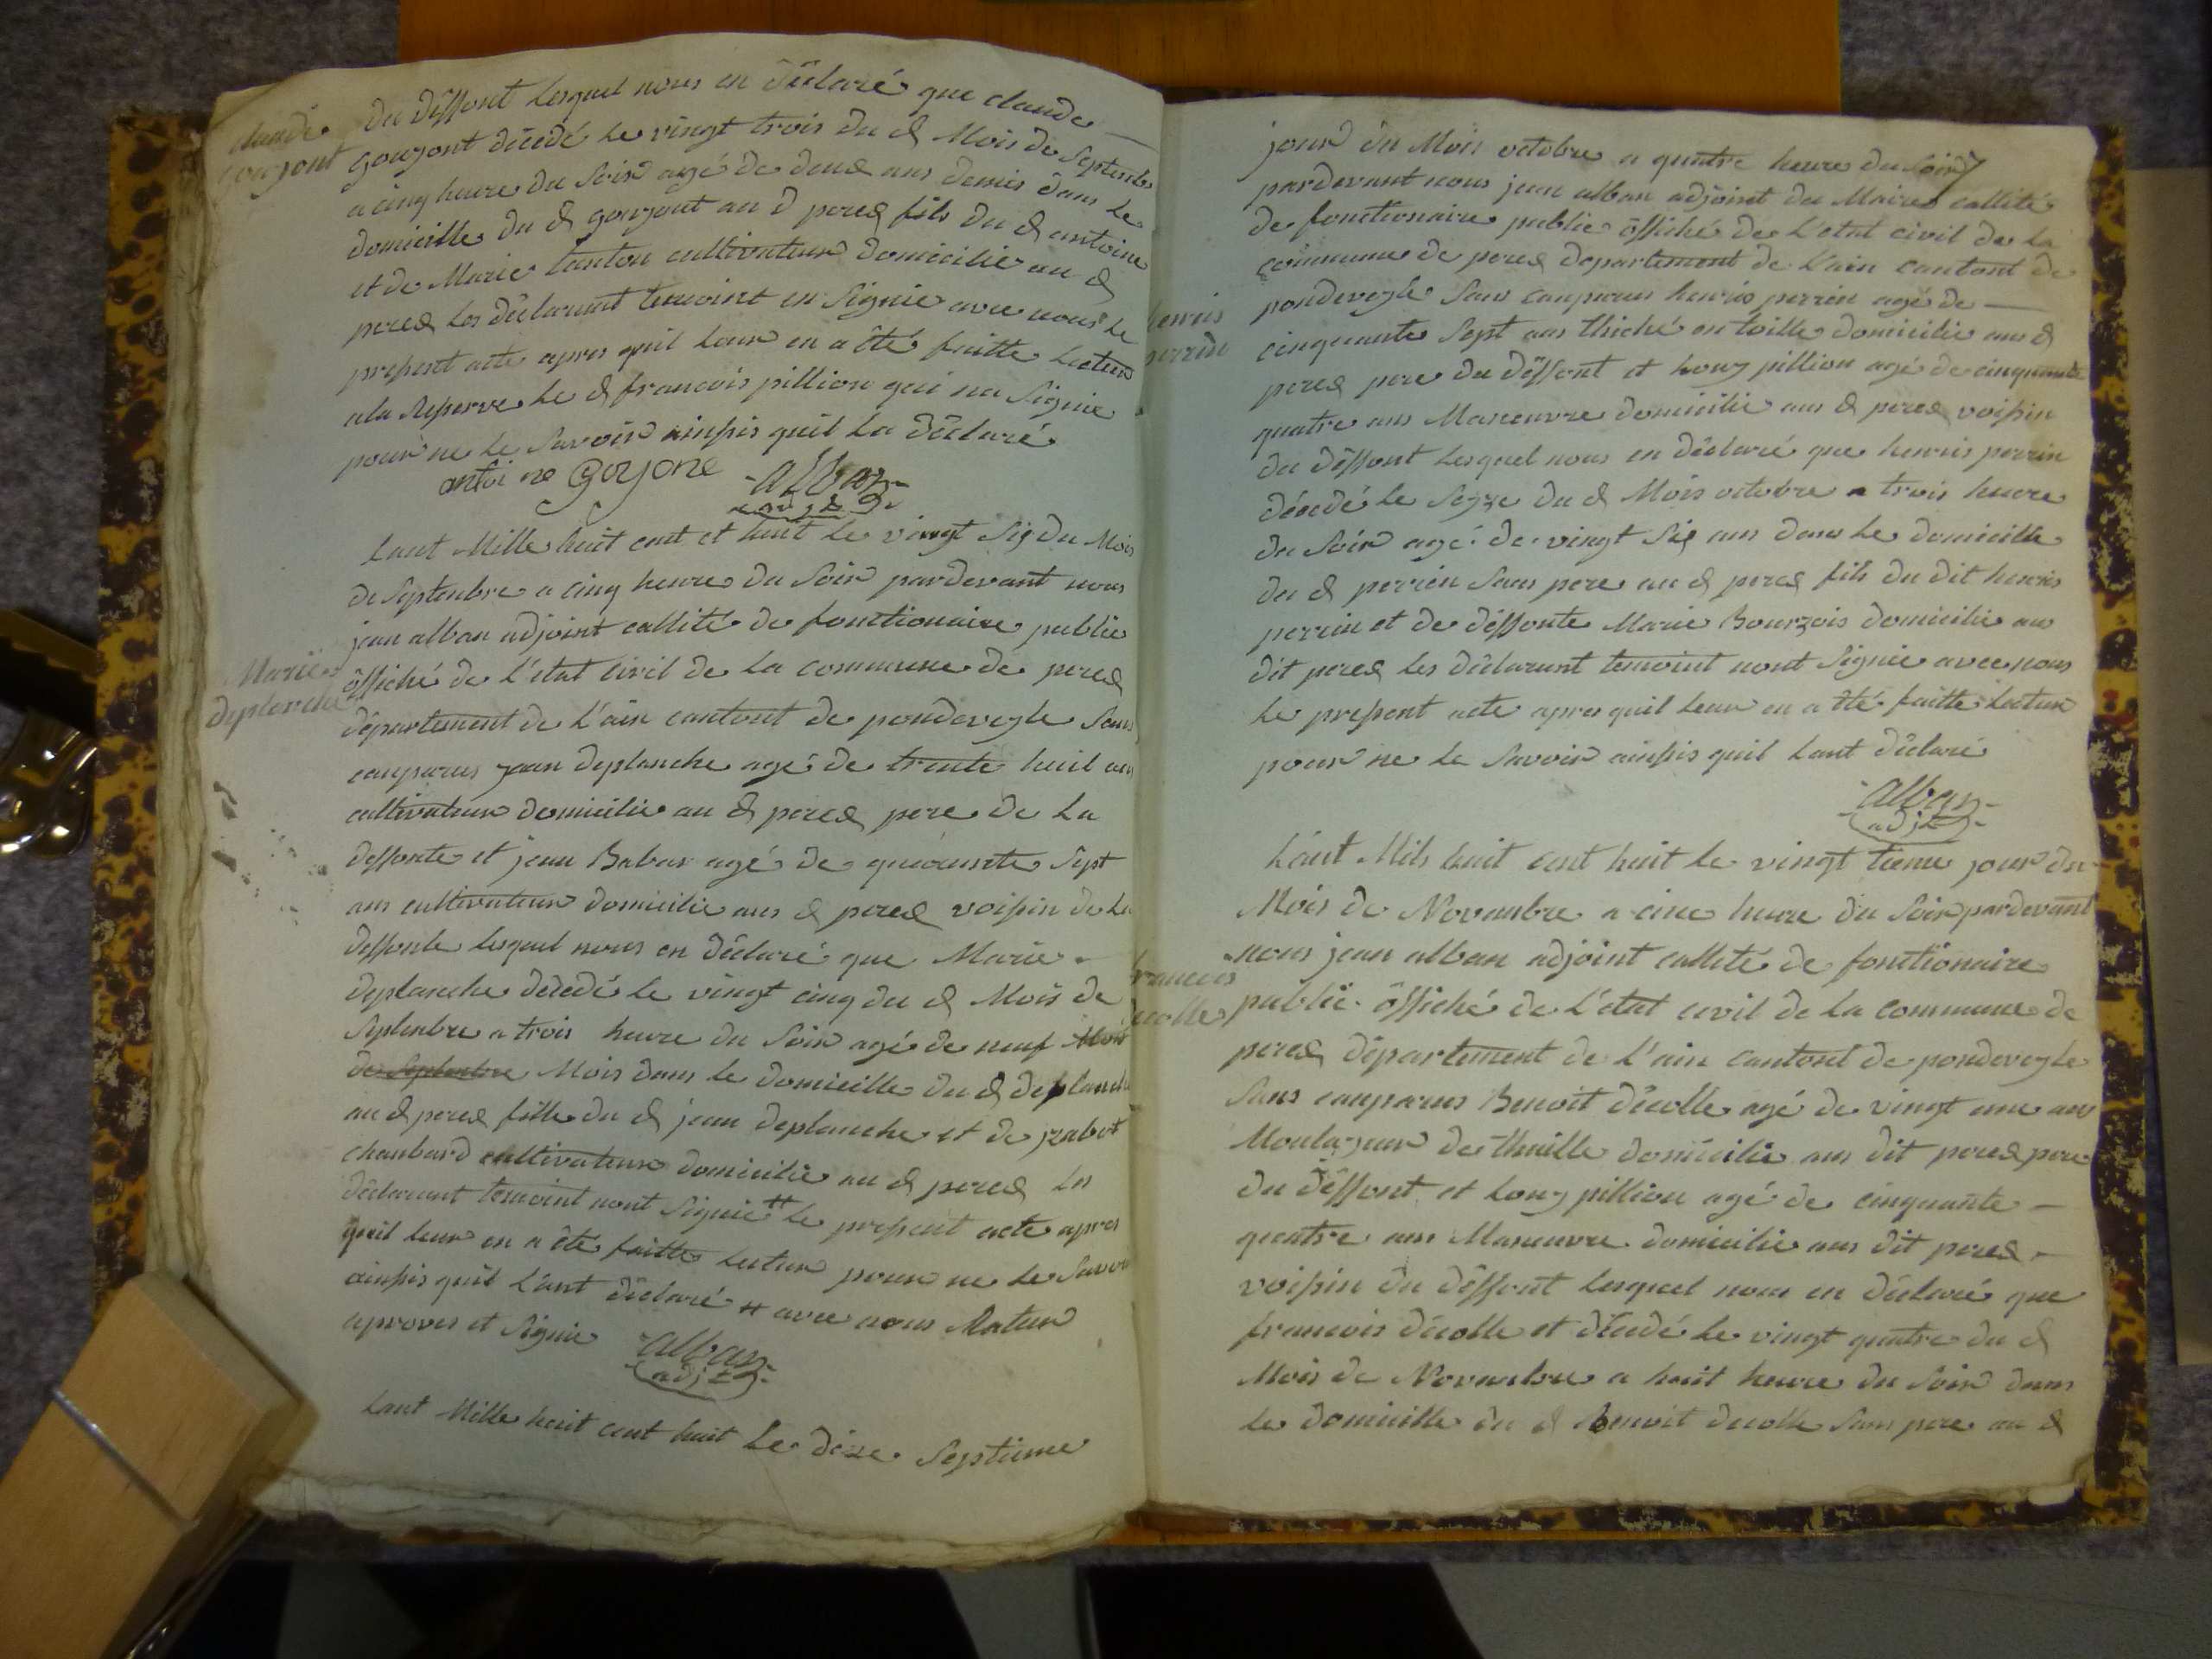 claude
goujont
du déffont lesquel nous en déclaré que claude
goujont décedé le vingt trois du d Mois de Septenbre
a cinq heure du Soir agé de deux ans demis dans le
domicille du d goujont au d perex fils du d antoine
et de Marie tanton cultivateur domicilié au d
perex les déclarant temoint en Signié avec nous le
present acte apres quil leur en a été faitte lecteur
a la Reserve le d francois pillion qui na Signie
pour ne le Savoir ainsis quil la déclaré
antoi ne Gojone alban
adjt
Marie
deplanche
Lant Mille huit cent et huit le vingt Six du Mois
de Septenbre a cinq heure du Soir pardevant nous
jean alban adjoint callité de fonctionaire public
öffiché de L'état civil de La commune de perex
département de L'ain cantont de pondeveyle Sans
conparus jean deplanche agé de trente huit ans
cultivateur domicilié au d perex pere de La
deffonte et jean Babar agé de quarante Sept
ans cultivateur domicilié aus d perex voisin de La
deffonte lesquel nous en déclaré que Marie
deplanche décedé le vingt cinq du d Mois de
Septenbre a trois heure du Soir agé de neuf Mois
de Septenbre Mois dans le domicille du d deplanche
au d perex fille du d jean deplanche et de jzabet
chanbard cultivateur domicilié au d perex les
déclarant temoint nont Signié # le present acte apres
quil leur en a été faitte lecture pour ne le Savoir
ainsis quil L'ant déclaré # avec nous Ratur
aprover et Signié alban
adjt
Lant Mille huit cent huit Le dixe Septieme
henris
perrin
jour du Mois octobre a quatre heure du Soir
pardevant nous jean alban adjoint du Maire callité
de fonctionaire public öffiché de L'etat civil de La
commune de perex departement de L'ain cantont de
pondeveyle Sans conparus henris perrin agé de
cinquante Sept ans thiché en toille domicilié aus d
perex pere du déffont et Louy pillion agé de cinquante
quatre ans Maneuvre domicilié aus d perex voisin
du déffont Lesquel nous en déclaré que henris perrin
décedé le Seze du d Mois octobre a trois heure
du Soir agé de vingt Six ans dans le domicille
du d perrin Sans pere au d perex fils du dit henris
perrin et de déffonte Marie Bourgois domicilié aus
dit perex Les déclarant temoint nont Signié avec nous
Le present acte apres quil leur en a été faitte Lectur
pour ne le Savoir ainsis quil Lant déclaré
alban
adjt
francois
décolle
Lant Mils huit cent huit le vingt tieme jour du
Mois de Novanbre a cinc heure du Soir pardevant
nous jean alban adjoint callité de fonctionaire
public öffiché de L'état civil de la commune de
perex département de L'ain cantont de pondeveyle
Sans conparus Benoit décolle agé de vingt une ans
Moulageur de thuille domicilié aus dit perex pere
du déffont et Louy pillion agé de cinquante
quatre ans Maneuvre domicilié aus dit perex
voisin du déffont Lesquel nous en déclaré que
francois décolle et décedé le vingt quatre du d
Mois de Novanbre a huit heure du Soir dans
le domicille du d Benoit décolle Sans pere au d